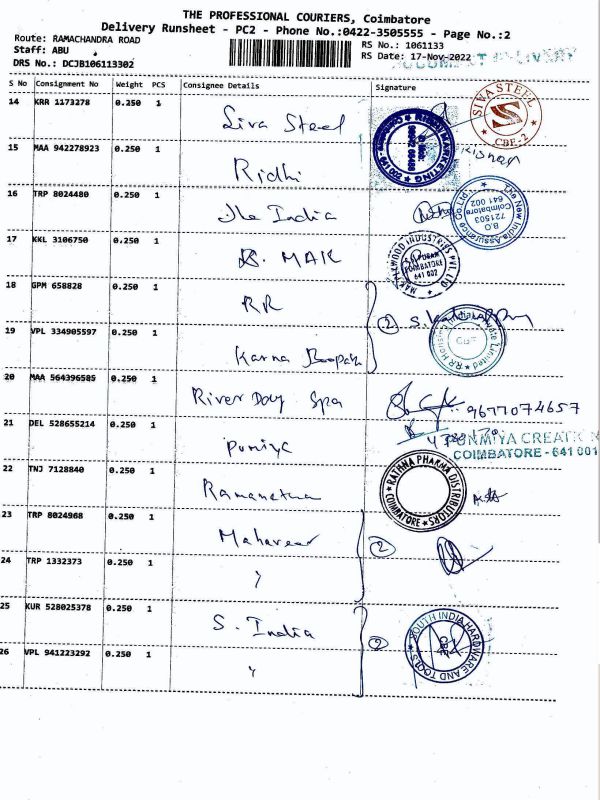 THE PROFESSIONAL COURIERS, Coimbatore
Delivery Runsheet - PC2 - Phone No.:0422-3505555 - Page No.:2
Route: RAMACHANDRA ROAD
RS No.: 1061133
Staff: ABU
RS Date: 17-Nov-2022
DRS No.: DCJB106113302
S No Consignment No Weight PCS Consignee Details Signature
14 KRR 1173278 0.250 1 Siva Steel
SIVA STEEL S CBE-2
15 MAA 942278923 0.250 1 Ridhi
RIDHI MARKETING
16 TRP 8024480 0.250 1 India
The New India Assurance Co. Ltd. B.O 721503 Coimbatore 641 002
17 KKL 3106750 0.250 1 MAK
INDUSTRIES PVT. LTD COIMBATORE 641 002
18 GPM 658828 0.250 1 RR
2
19 VPL 334905597 0.250 1 Karna
RR Private Limited
20 MAA 564396585 0.250 1 River Day Spa
9677074657
21 DEL 528655214 0.250 1 Pumiya
PUNMIYA CREATION
COIMBATORE - 641 001
22 TNJ 7128840 0.250 1
RATHNA PHARMA DISTRIBUTORS COIMBATORE
23 TRP 8024968 0.250 1 Mahaveer
2
24 TRP 1332373 0.250 1 "
25 KUR 528025378 0.250 1 S. India
2
SOUTH INDIA HARDWARE AND TOOLS CBE
26 VPL 941223292 0.250 1 "